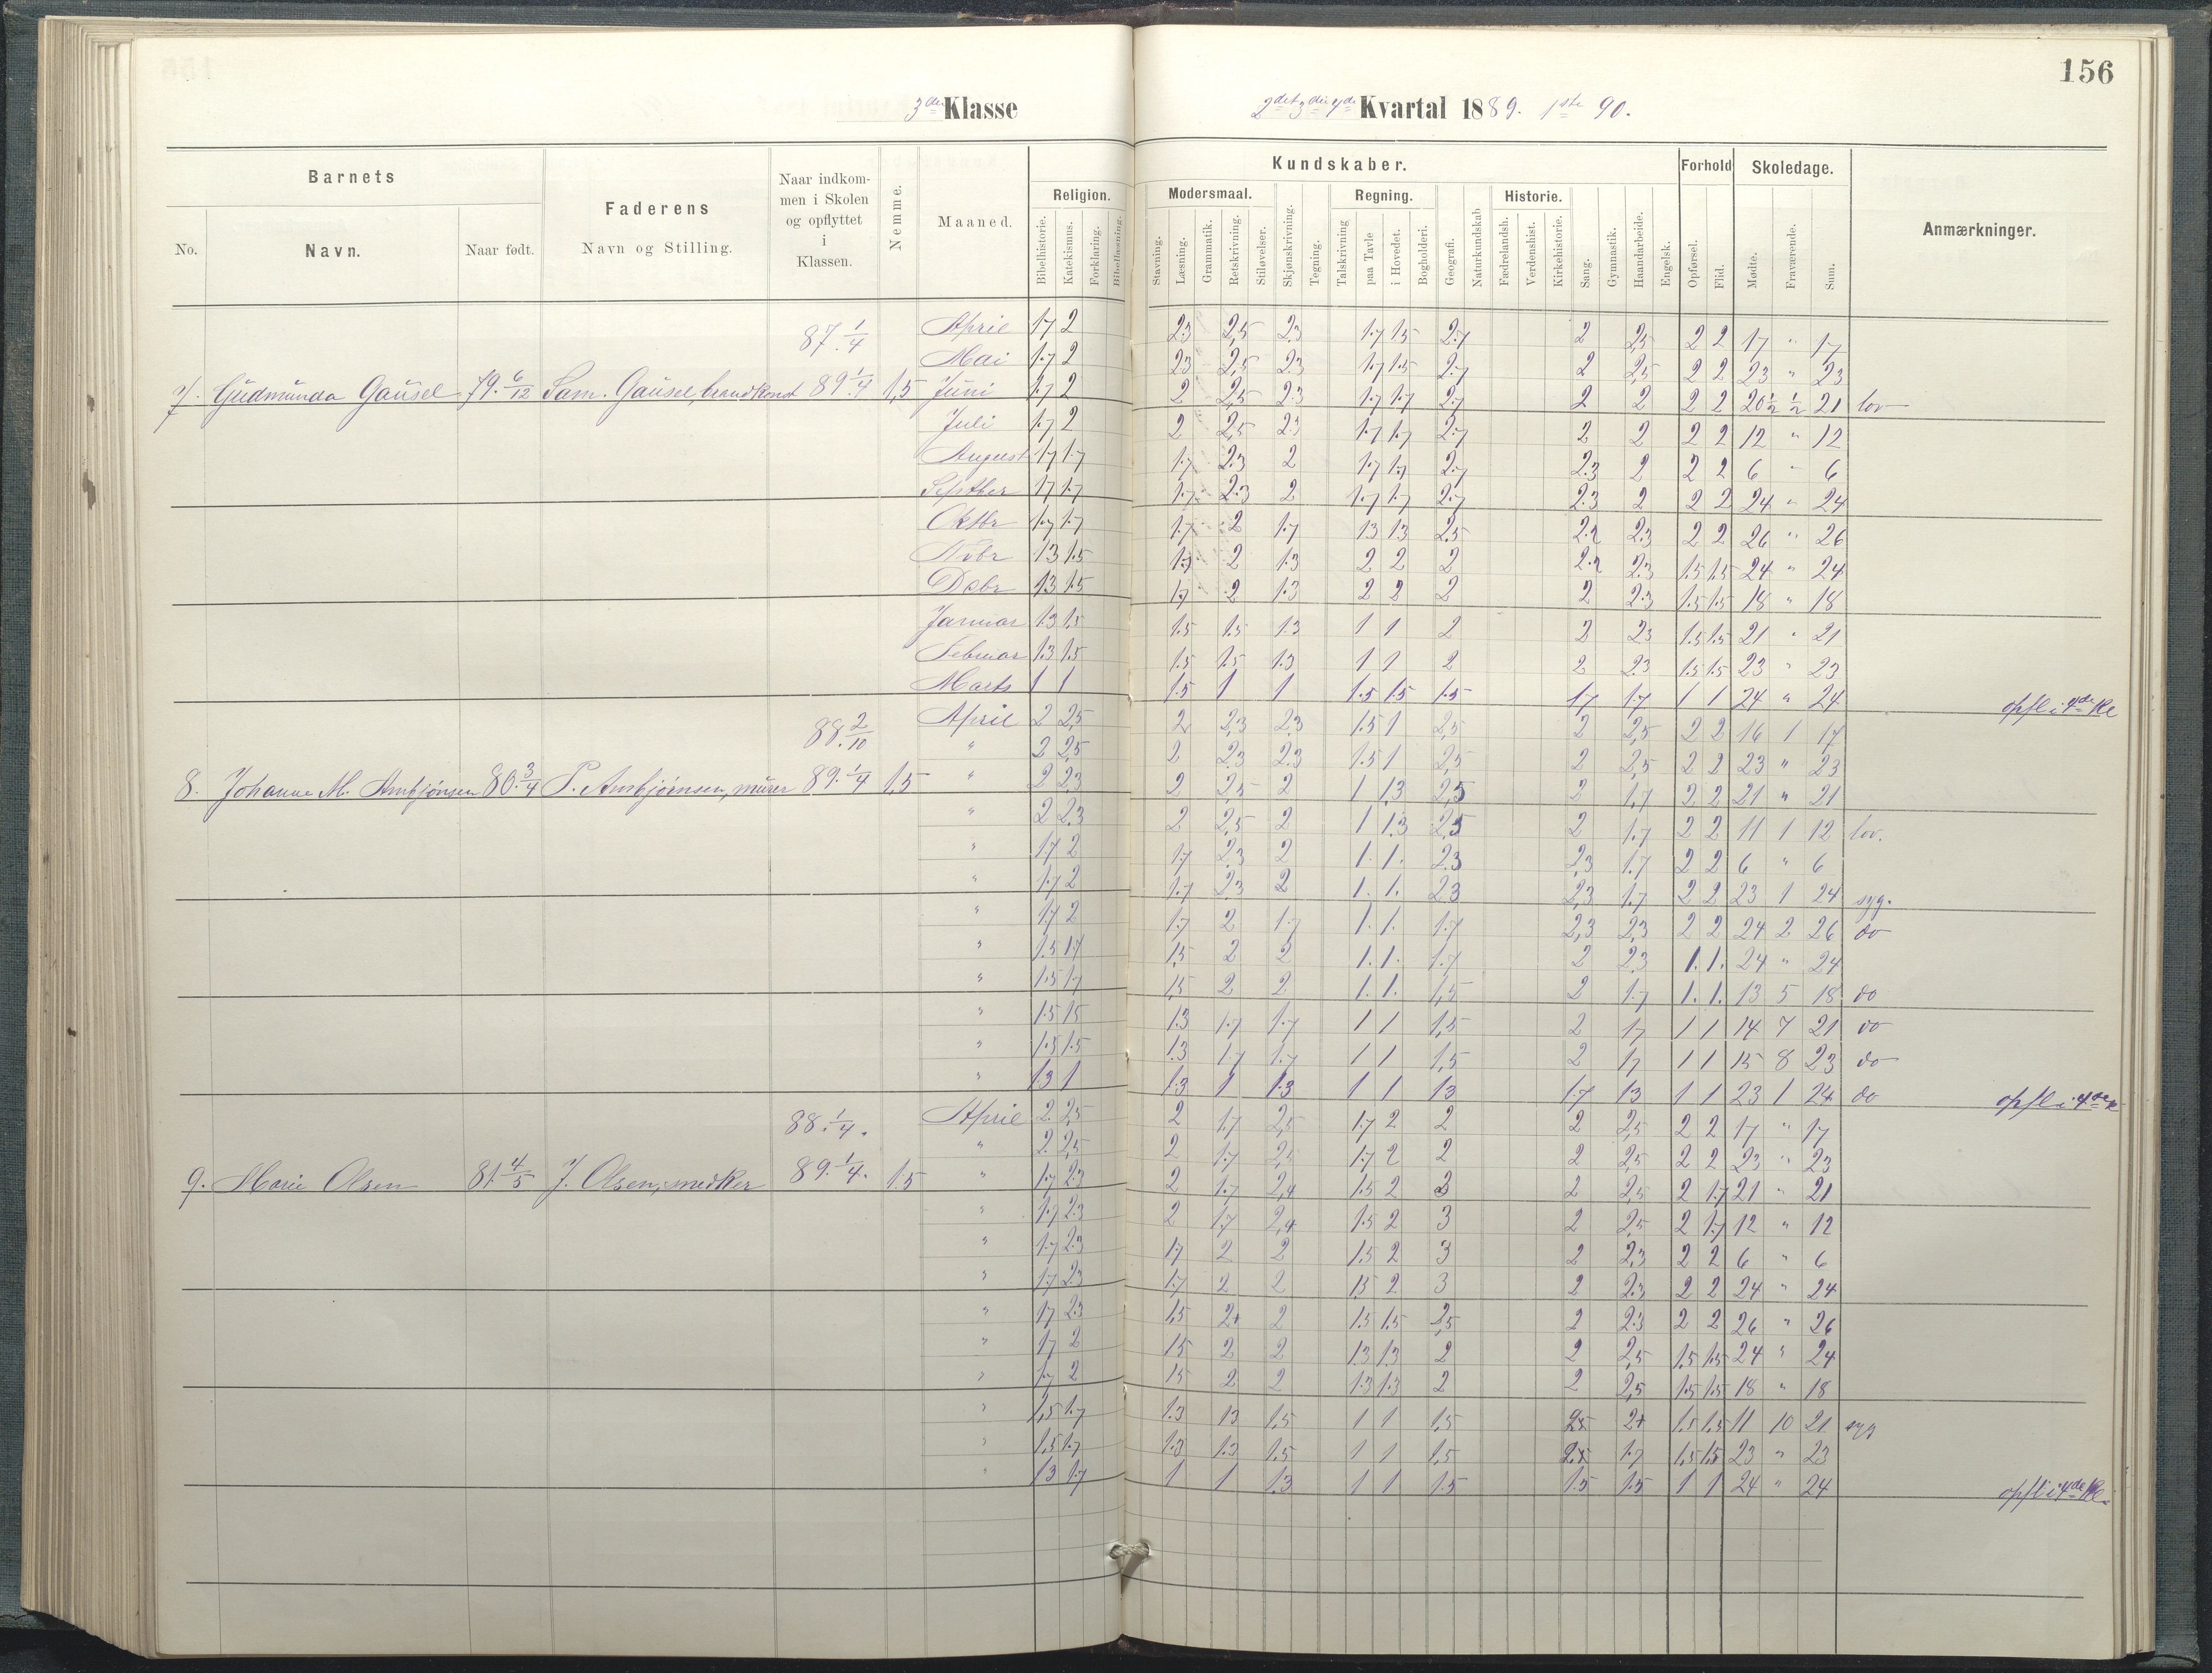 156
3die Klasse
2det 3die 4de Kvartal 1889. 1ste 90.
Barnets
Faderens
Naar indkommen i Skolen og opflyttet i Klassen.
Nemme.
Maaned.
Kundskaber.
Forhold
Skoledage.
Anmærkninger.
No.
Navn.
Naar født.
Navn og Stilling.
Religion.
Modersmaal.
Regning.
Historie.
Bibelhistorie.
Katekismus.
Forklaring.
Bibellæsning.
Stavning.
Læsning.
Grammatik.
Retskrivning.
Stiløvelser.
Skjønskrivning.
Tegning.
Talskrivning
paa Tavle
i Hovedet.
Bogholderi.
Geografi.
Naturkundskab
Fædrelandsh.
Verdenshist.
Kirkehistorie.
Sang.
Gymnastik.
Haandarbeide.
Engelsk.
Opførsel.
Flid.
Mødte.
Fraværende.
Sum.
87. 1/4 April 1.7 2 2.3 2,5 2.3 1.7 1.5 2.7 2 2,5 2 2 17 " 17
Mai 1.7 2 2.3 2,5 2.3 1.7 1.5 2.7 2 2,5 2 2 23 " 23
7. Gudmunda Gausel 79. 6/12 Sam. Gausel, brandkonst 89. 1/4 1,5 Juni 1.7 2 2 2,5 2.3 1.7 1.7 2.7 2 2 2 2 20 1/2 1/2 21 lov
Juli 1.7 2 2 2,5 2.3 1.7 1.7 2.7 2 2 2 2 12 " 12
August 1.7 1.7 1.7 2.3 2 1.7 1.7 2.7 2.3 2 2 2 6 " 6
Septber 1.7 1.7 1.7 2.3 2 1.7 1.7 2.7 2.3 2 2 2 24 " 24
Oktbr 1.7 1.7 1.7 2 1.7 1.3 1.3 2.5 2.3 2 2 26 " 26
Novbr 1.3 1.5 2 1.3 2 2 2 2.3 1.5 1.5 24 " 24
Decbr 1.3 1.5 1.7 2 1.3 2 2 2 2 2.3 1.5 1.5 18 " 18
Januar 1.3 1.5 1.5 1.5 1.3 1 1 2 2 2.3 1.5 1.5 21 " 21
Februar 1.3 1.5 1.5 1.5 1.3 1 1 2 2 2.3 1.5 1.5 23 " 23
Marts 1 1 1.5 1 1 1.5 1.5 1.5 1.7 1.7 1 1 24 " 24 opfl i 4de Kl
88. 2/10 April 2 2,5 2 2,3 2,3 1.5 1 2,5 2 2,5 2 2 16 1 17
" 2 2,5 2 2.3 2.3 1.5 1 2,5 2 2,5 2 2 23 " 23
8. Johanne M. Ambjørnsen 80. 3/4 P. Ambjørnsen, murer 89. 1/4 1,5 " 2 2.3 2 2,5 2 1 1,3 2,5 2 1,7 2 2 21 " 21
" 2 2.3 2 2,5 2 1 1.3 2.5 2 1.7 2 2 11 1 12 lov.
" 1.7 2 1.7 2.3 2 1. 1. 2.3 2.3 1.7 2 2 6 " 6
" 1.7 2 1.7 2.3 2 1. 1. 2.3 2,3 1.7 2 2 23 1 24 syg.
" 1.7 2 1.7 2 1.7 1. 1. 1.7 2,3 2.3 2 2 24 2 26 do
" 1.5 1.7 1.5 2 2 1. 1. 1.7 2 2.3 1. 1. 24 " 24
" 1.5 1.7 1.5 2 2 1. 1. 1,5 2 1.7 1. 1. 13 5 18 do
" 1.5 1.5 1.3 1.7 1.7 1 1 1,5 2 1.7 1 1 14 7 21 do
" 1.5 1.5 1.3 1.7 1.7 1 1 1,5 2 1.7 1 1 15 8 23 do
" 1.3 1 1.3 1 1.3 1 1 1.3 1.7 1.3 1 1 23 1 24 do opfl i 4de
88. 1/4. April 2 2,5 2 1.7 2,5 1.7 2 2 2 2,5 2 2 17 " 17
" 2 2,5 2 1.7 2,5 1.7 2 2 2 2,5 2 2 23 " 23
9. Marie Olsen 81. 4/5 J. Olsen, snedker 89. 1/4. 1.5 " 1.7 2.3 2 1.7 2,4 1.5 2 3 2 2,5 2 1.7 21 " 21
" 1.7 2.3 2 1.7 2,4 1.5 2 3 2 2,5 2 1.7 12 " 12
" 1.7 2.3 1.7 2 2 1.5 2 3 2 2.3 2 2 6 " 6
" 1.7 2.3 1.7 2 2 1.5 2 3 2 2.3 2 2 24 " 24
" 1.7 2.3 1.5 2+ 2 1.5 1.5 2,5 2 2.3 2 2 26 " 26
" 1.7 2 1.5 2 2 1.3 1.3 2 2 2,5 1.5 1.5 24 " 24
" 1.7 2 1.5 2 2 1.3 1.3 2 2 2,5 1.5 1.5 18 " 18
" 1,5 1.7 1.3 1.3 1,5 1 1 1,5 2+ 1.5 1.5 11 10 21 syg
" 1,5 1.7 1.3 1.3 1,5 1 1 1,5 1.7 1.5 1.5 23 " 23
" 1.3 1.7 1 1 1.3 1 1 1.5 1.5 1.5 1 1 24 " 24 opfl i 4de Kl.